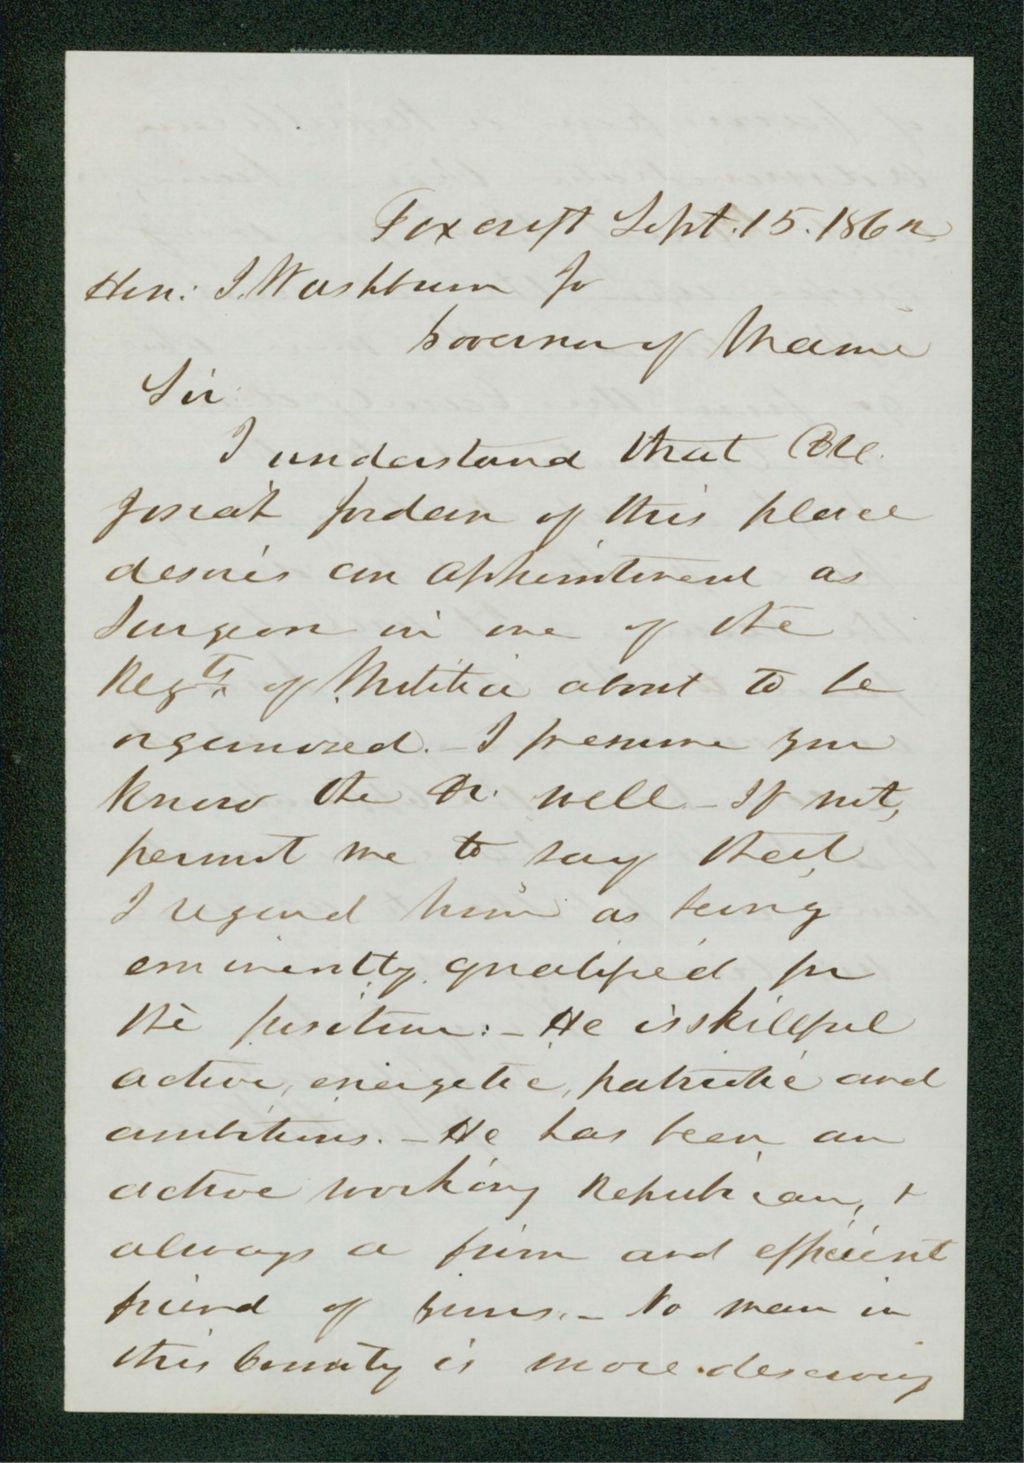 Foxcroft Sept. 15. 1862
Hon: I. Washburn Jr
Governor of Maine
Sir
I understand that
Josiah Jordan of this place
desires an appointment as
Surgeon in one of the
Regts. of Militia about to be
organized. - I presume you
know the Dr. well - If not,
permit me to say that
I regard him as being
eminently qualified for
the position: - He is skillful
active, energetic, patriotic and
ambitious. - He has been an
active working Republican, &
always a firm and efficient
friend of yours. - No man in
this County is more deserving